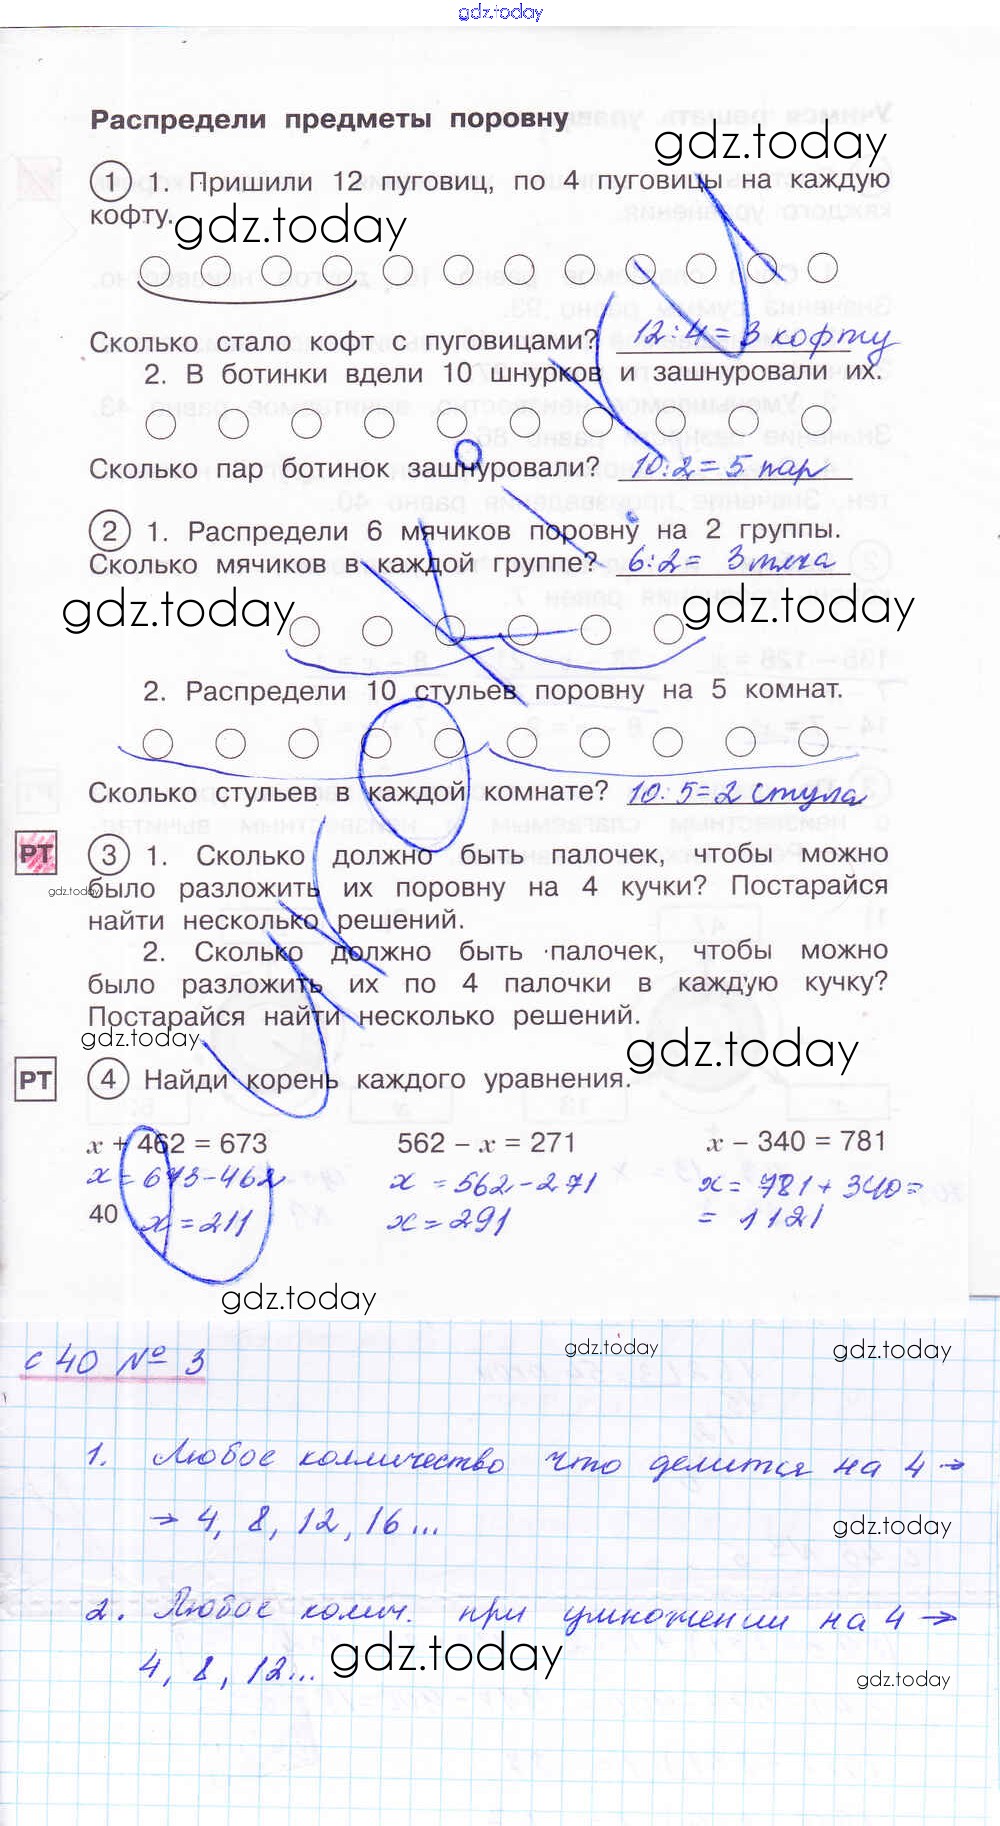 gdz.today
Распредели предметы поровну
gdz.today
1 1. Пришили 12 пуговиц, по 4 пуговицы на каждую
кофту.
gdz.today
Сколько стало кофт с пуговицами? 12:4=3 кофту
2. В ботинки вдели 10 шнурков и зашнуровали их.
Сколько пар ботинок зашнуровали? 10:2=5 пар
2 1. Распредели 6 мячиков поровну на 2 группы.
Сколько мячиков в каждой группе? 6:2= 3 мяча
gdz.today
gdz.today
2. Распредели 10 стульев поровну на 5 комнат.
Сколько стульев в каждой комнате? 10:5=2 стула
РТ 3 1. Сколько должно быть палочек, чтобы можно
было разложить их поровну на 4 кучки? Постарайся
gdz.today
найти несколько решений.
2. Сколько должно быть палочек, чтобы можно
было разложить их по 4 палочки в каждую кучку?
Постарайся найти несколько решений.
gdz.today
gdz.today
РТ 4 Найди корень каждого уравнения.
x + 462 = 673 562 – x = 271 x – 340 = 781
x=673-462 x =562-271 x=781+340=
40 x=211 x=291 = 1121
gdz.today
с 40 № 3
gdz.today
gdz.today
1. Любое колличество что делится на 4 →
→ 4, 8, 12, 16...
gdz.today
2. Любое колич. при умножении на 4 →
4, 8, 12...
gdz.today
gdz.today